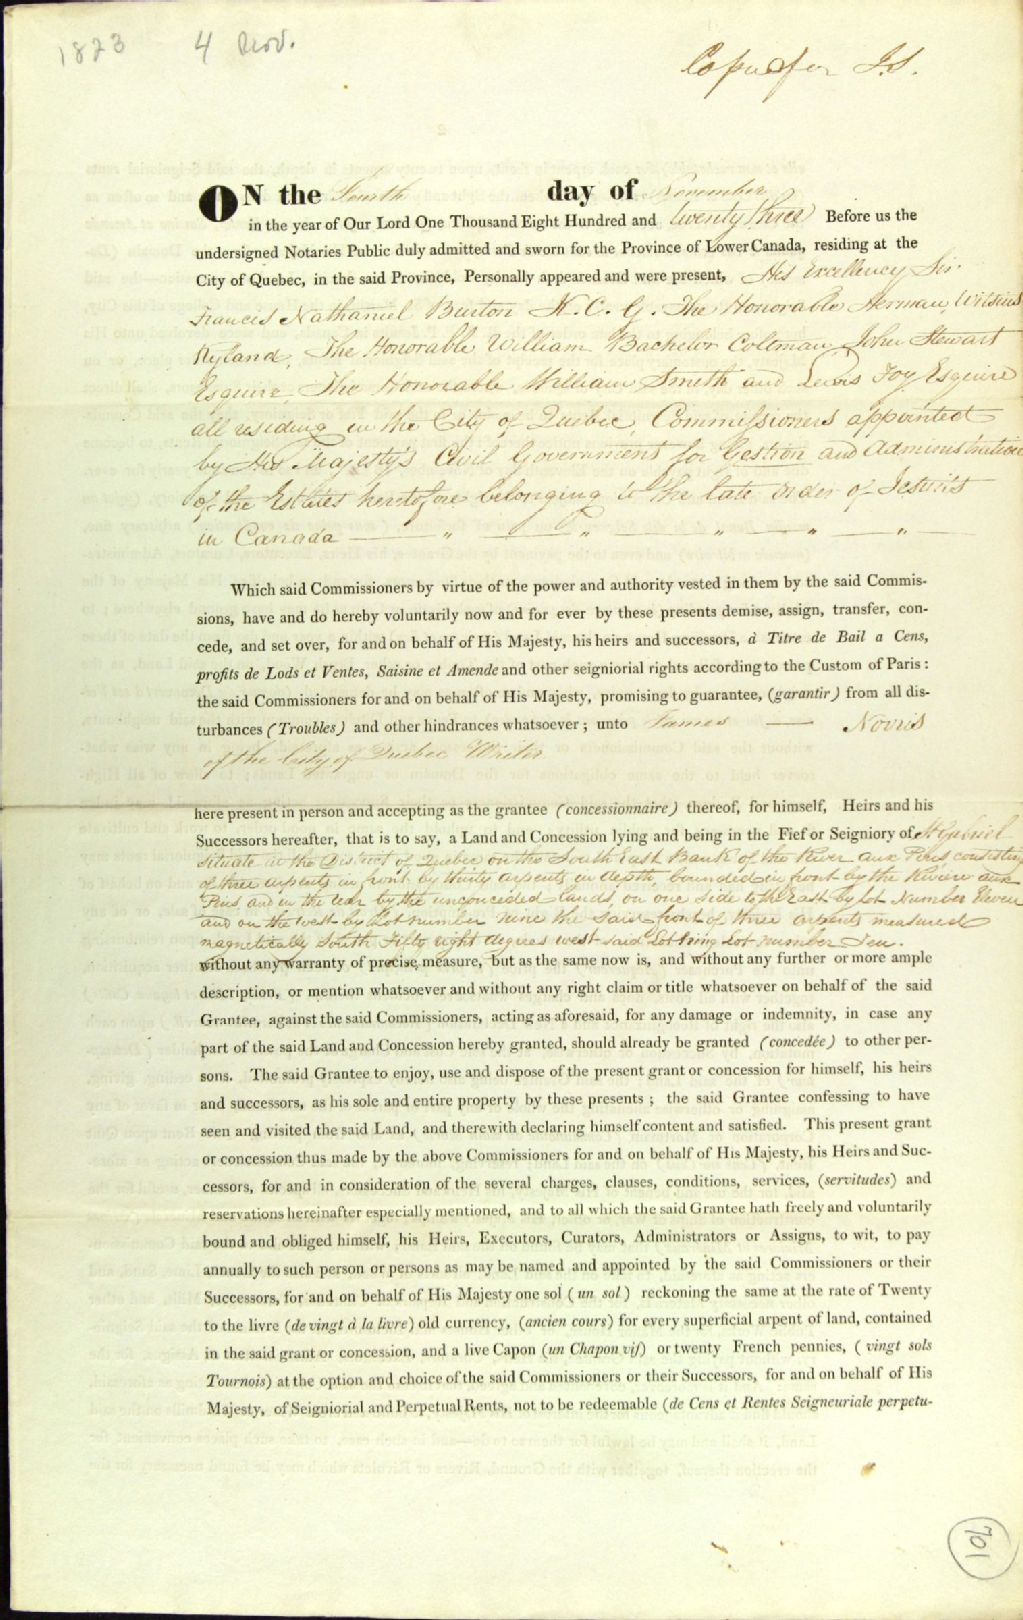 1823 4 Nov.
Copie for J.S.
ON the Fourth day of November
in the year of Our Lord One Thousand Eight Hundred and twenty three Before us the
undersigned Notaries Public duly admitted and sworn for the Province of Lower Canada, residing at the
City of Quebec, in the said Province, Personally appeared and were present, His Excellency Sir
Francis Nathaniel Burton K. C. G. The Honorable Herman Witsius
Ryland, The Honorable William Bachelor Coltman John Stewart
Esquire, The Honorable William Smith and Lewis Foy Esquire
all residing in the City of Quebec, Commissioners appointed
by His Majesty's Civil Government for Gestion and Administration
of the Estates heretofore belonging to the late order of Jesuits
in Canada — " — " — " — " — " —
Which said Commissioners by virtue of the power and authority vested in them by the said Commis-
sions, have and do hereby voluntarily now and for ever by these presents demise, assign, transfer, con-
cede, and set over, for and on behalf of His Majesty, his heirs and successors, à Titre de Bail a Cens,
profits de Lods et Ventes, Saisine et Amende and other seigniorial rights according to the Custom of Paris :
the said Commissioners for and on behalf of His Majesty, promising to guarantee, (garantir) from all dis-
turbances (Troubles) and other hindrances whatsoever ; unto James — Norris
of the City of Quebec Writer
here present in person and accepting as the grantee (concessionnaire) thereof, for himself, Heirs and his
Successors hereafter, that is to say, a Land and Concession lying and being in the Fief or Seigniory of St Gabriel
situate in the District of Quebec on the South East Bank of the River aux Pins consisting
of three arpents in front by thirty arpents in depth, bounded in front by the Riviere aux
Pins and in the rear by the unconceded lands, on one side to the East by lot Number Eleven
and on the west by Lot number nine the said front of three arpents measured
magnetically South Fifty eight degrees west said Lot being Lot number Ten.
without any warranty of precise measure, but as the same now is, and without any further or more ample
description, or mention whatsoever and without any right claim or title whatsoever on behalf of the said
Grantee, against the said Commissioners, acting as aforesaid, for any damage or indemnity, in case any
part of the said Land and Concession hereby granted, should already be granted (concedée) to other per-
sons. The said Grantee to enjoy, use and dispose of the present grant or concession for himself, his heirs
and successors, as his sole and entire property by these presents ; the said Grantee confessing to have
seen and visited the said Land, and therewith declaring himself content and satisfied. This present grant
or concession thus made by the above Commissioners for and on behalf of His Majesty, his Heirs and Suc-
cessors, for and in consideration of the several charges, clauses, conditions, services, (servitudes) and
reservations hereinafter especially mentioned, and to all which the said Grantee hath freely and voluntarily
bound and obliged himself, his Heirs, Executors, Curators, Administrators or Assigns, to wit, to pay
annually to such person or persons as may be named and appointed by the said Commissioners or their
Successors, for and on behalf of His Majesty one sol (un sol) reckoning the same at the rate of Twenty
to the livre (de vingt à la livre) old currency, (ancien cours) for every superficial arpent of land, contained
in the said grant or concession, and a live Capon (un Chapon vif) or twenty French pennies, ( vingt sols
Tournois) at the option and choice of the said Commissioners or their Successors, for and on behalf of His
Majesty, of Seigniorial and Perpetual Rents, not to be redeemable (de Cens et Rentes Seigneuriale perpetu-
701